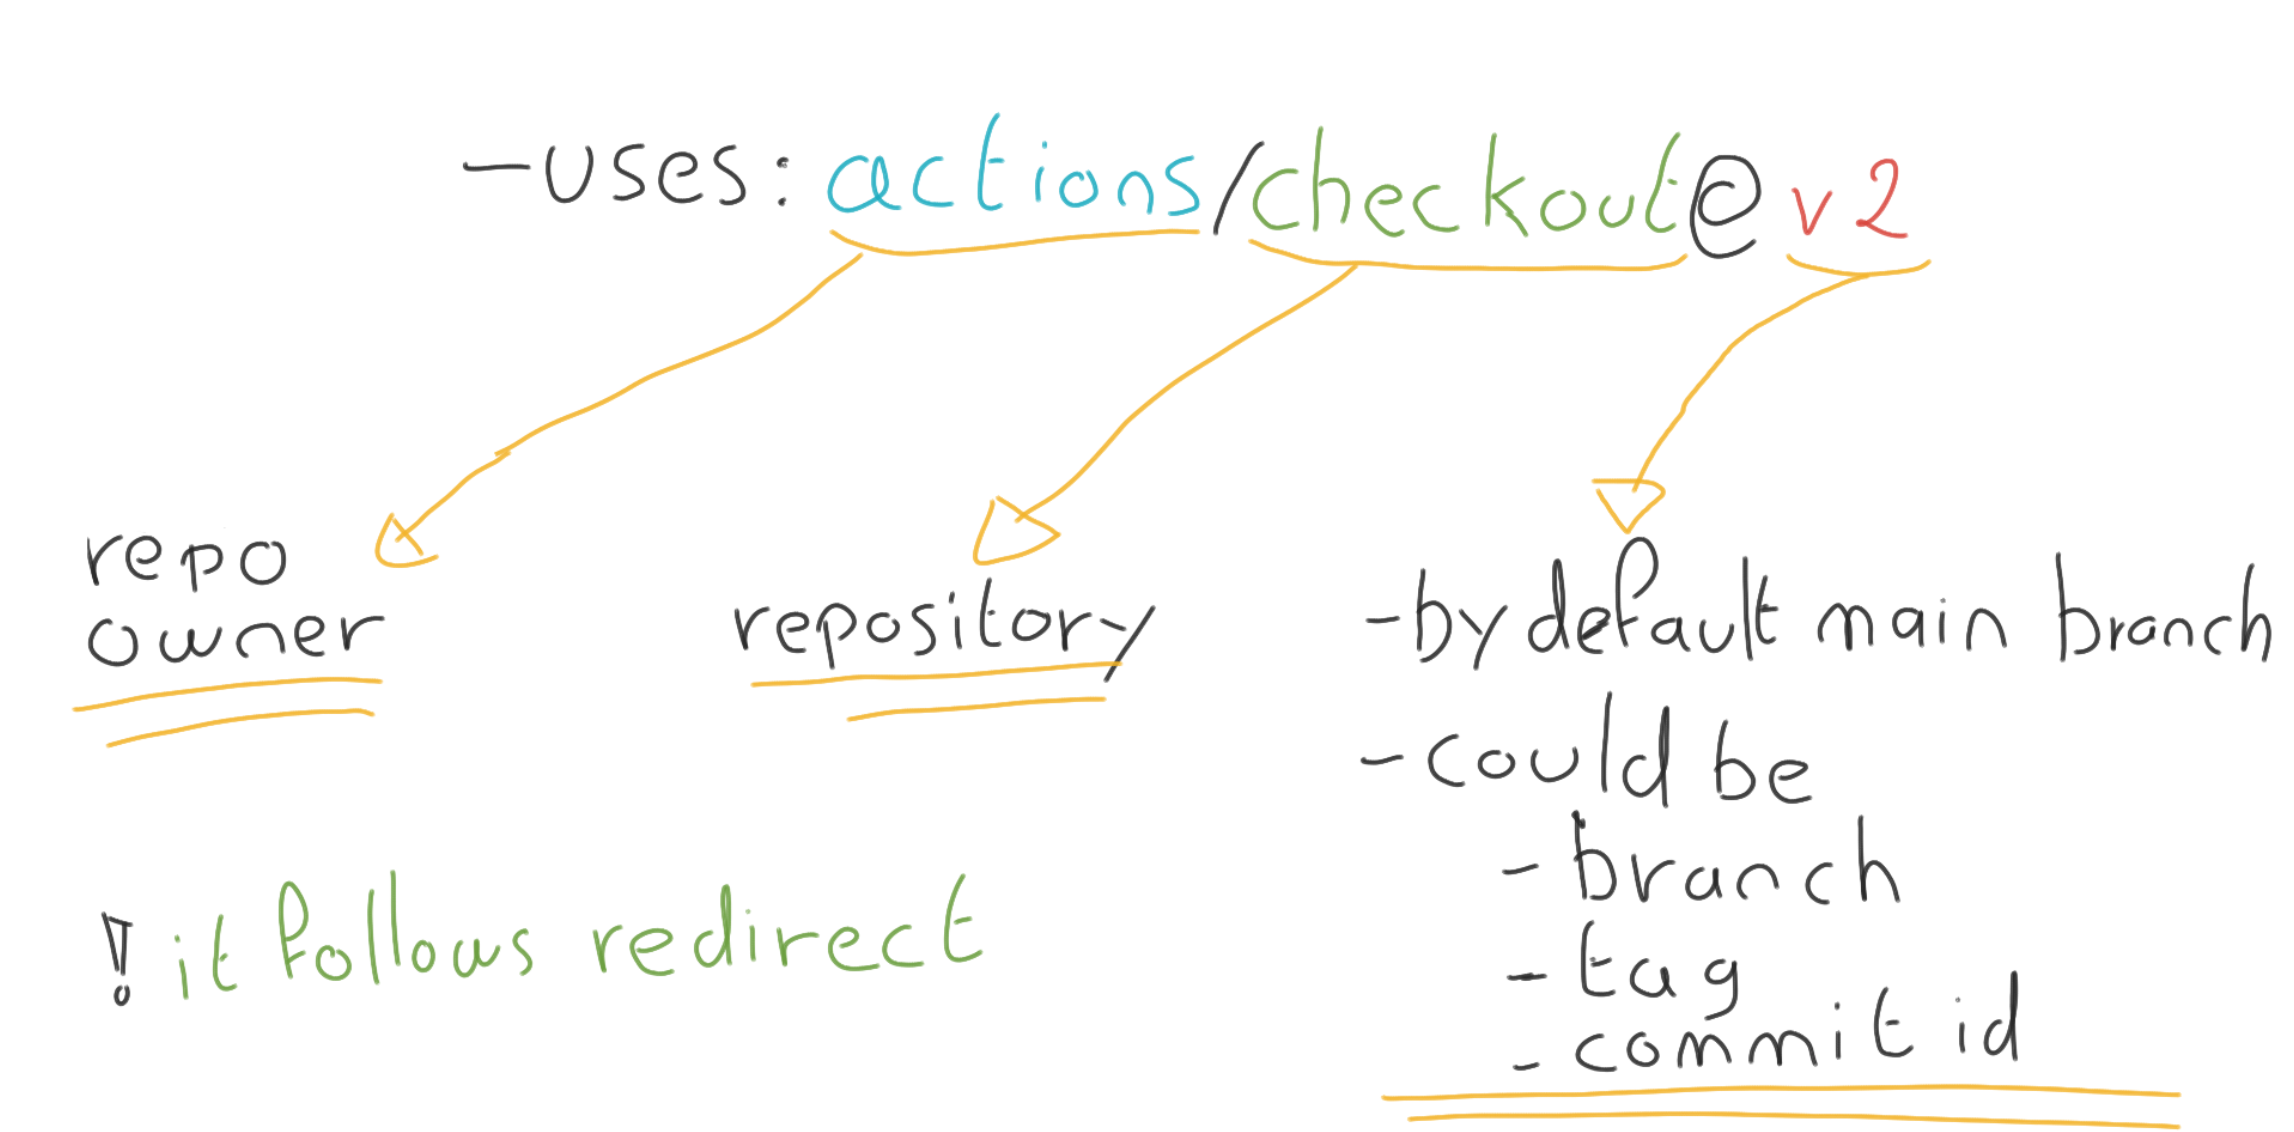 -uses: actions/checkout@v2
repo
owner
repository
-by default main branch
-could be
-branch
-tag
-commit id
! it follows redirect